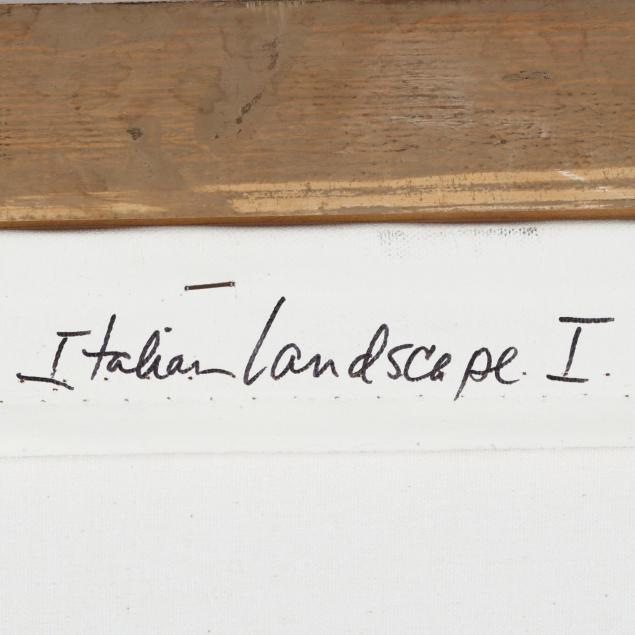 Italian landscape. I.